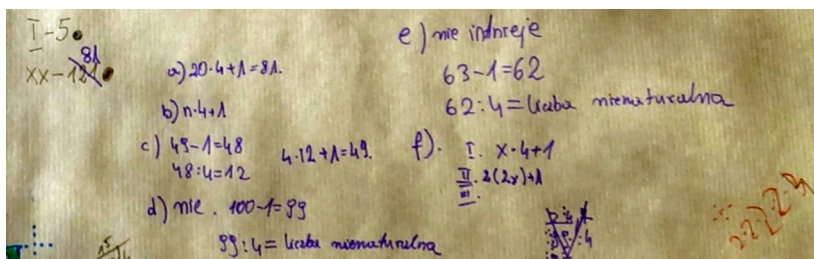 I - 5
81
XX - 121
a) 20·4+1=81.
b) n·4+1
c) 49-1=48
48:4=12
4·12+1=49.
d) nie. 100-1=99
99:4= liczba nienaturalna
e) nie istnieje
63-1=62
62:4= liczba nienaturalna
f). I. x·4+1
II. 2(2x)+1
III.